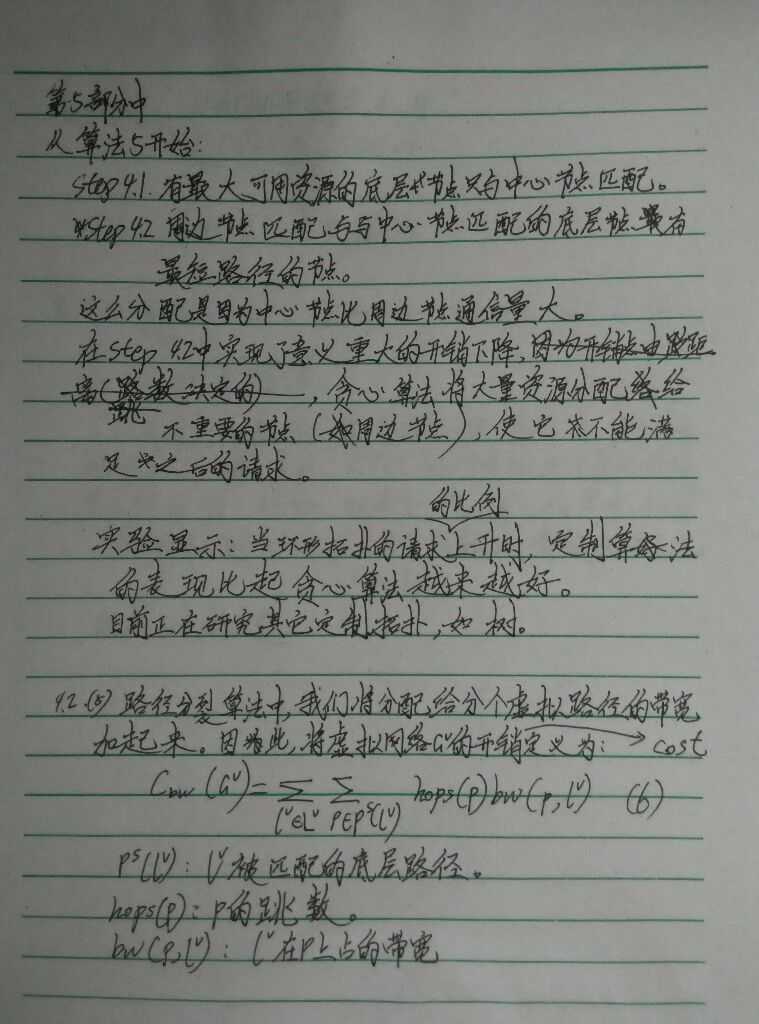 第5部分中
从算法5开始:
Step 4.1. 有最大可用资源的底层节点只与中心节点匹配。
*Step 4.2 周边节点匹配与与中心节点匹配的底层节点有
最短路径的节点。
这么分配是因为中心节点比周边节点通信量大。
在Step 4.2中实现了意义重大的开销下降,因为开销是由距
离(跳数决定的),贪心算法将大量资源分配给
不重要的节点(如周边节点),使它不能满
足之后的请求。
的比例
实验显示:当环形拓扑的请求上升时,定制算法
的表现比起贪心算法越来越好。
目前正在研究其它定制拓扑,如树。
4.2.(5) 路径分裂算法中,我们将分配给分个虚拟路径的带宽
加起来。因此,将虚拟网络Gᵛ的开销定义为: → cost
C_bw(Gᵛ)=∑_{lᵛ∈Lᵛ} ∑_{p∈Pˢ(lᵛ)} hops(p)bw(p,lᵛ) (6)
Pˢ(lᵛ): lᵛ被匹配的底层路径。
hops(p): p的跳数。
bw(p,lᵛ): lᵛ在p上占的带宽